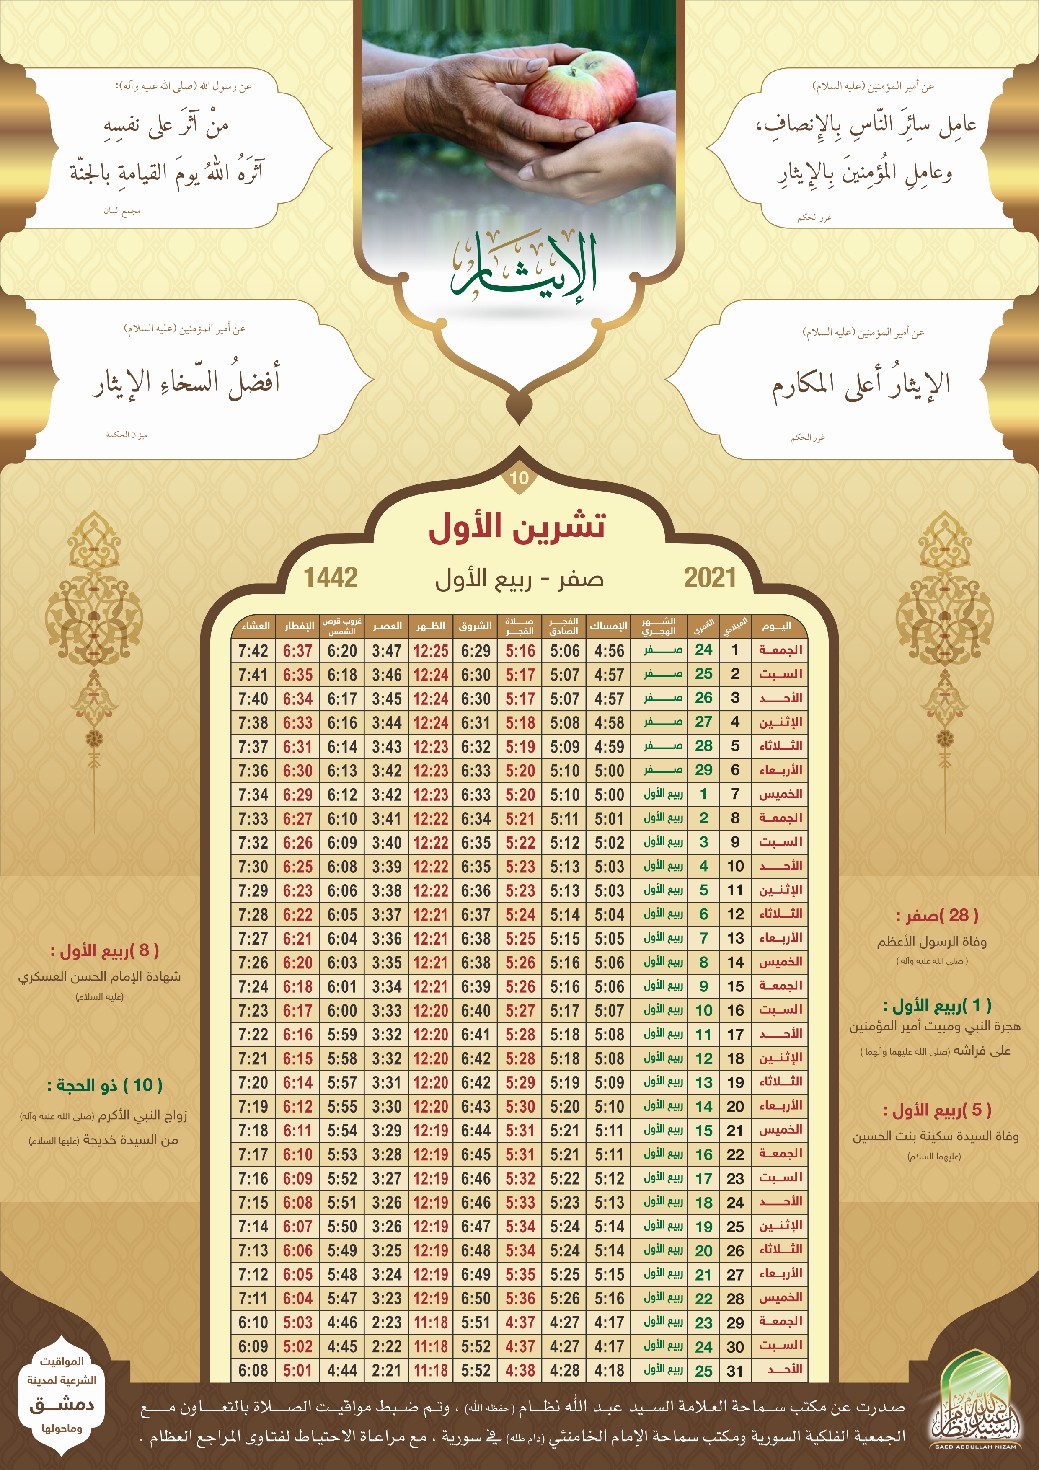 عن أمير المؤمنين (عليه السلام)
عامِل سائرَ النّاسِ بِالإنصافِ،
وعامِلِ المُؤمِنينَ بِالإيثارِ
غرر الحكم
عن رسول الله (صلى الله عليه وآله):
منْ آثَرَ على نفسِهِ
آثَرَهُ اللهُ يومَ القيامةِ بالجنّة
مجمع البيان
الإيثار
عن أمير المؤمنين (عليه السلام)
الإيثارُ أعلى المكارم
غرر الحكم
عن أمير المؤمنين (عليه السلام)
أفضلُ السّخاءِ الإيثار
ميزان الحكمة
10
تشرين الأول
2021 صفر - ربيع الأول 1442
اليـوم الميلادي القمري الشـهر الهجري الإمساك الفجـر الصادق صـلاة الفجـر الشروق الظـهر العصـر غروب قرص الشمس الإفطار العشاء
الجمعـة 1 24 صـفر 4:56 5:06 5:16 6:29 12:25 3:47 6:20 6:37 7:42
السـبت 2 25 صـفر 4:57 5:07 5:17 6:30 12:24 3:46 6:18 6:35 7:41
الأحـد 3 26 صـفر 4:57 5:07 5:17 6:30 12:24 3:45 6:17 6:34 7:40
الإثنـين 4 27 صـفر 4:58 5:08 5:18 6:31 12:24 3:44 6:16 6:33 7:38
الثـلاثاء 5 28 صـفر 4:59 5:09 5:19 6:32 12:23 3:43 6:14 6:31 7:37
الأربـعاء 6 29 صـفر 5:00 5:10 5:20 6:33 12:23 3:42 6:13 6:30 7:36
الخميس 7 1 ربيع الأول 5:00 5:10 5:20 6:33 12:23 3:42 6:12 6:29 7:34
الجمعـة 8 2 ربيع الأول 5:01 5:11 5:21 6:34 12:22 3:41 6:10 6:27 7:33
السـبت 9 3 ربيع الأول 5:02 5:12 5:22 6:35 12:22 3:40 6:09 6:26 7:32
الأحـد 10 4 ربيع الأول 5:03 5:13 5:23 6:35 12:22 3:39 6:08 6:25 7:30
الإثنـين 11 5 ربيع الأول 5:03 5:13 5:23 6:36 12:22 3:38 6:06 6:23 7:29
الثـلاثاء 12 6 ربيع الأول 5:04 5:14 5:24 6:37 12:21 3:37 6:05 6:22 7:28
الأربـعاء 13 7 ربيع الأول 5:05 5:15 5:25 6:38 12:21 3:36 6:04 6:21 7:27
الخميس 14 8 ربيع الأول 5:06 5:16 5:26 6:38 12:21 3:35 6:03 6:20 7:26
الجمعـة 15 9 ربيع الأول 5:06 5:16 5:26 6:39 12:21 3:34 6:01 6:18 7:24
السـبت 16 10 ربيع الأول 5:07 5:17 5:27 6:40 12:20 3:33 6:00 6:17 7:23
الأحـد 17 11 ربيع الأول 5:08 5:18 5:28 6:41 12:20 3:32 5:59 6:16 7:22
الإثنـين 18 12 ربيع الأول 5:08 5:18 5:28 6:42 12:20 3:32 5:58 6:15 7:21
الثـلاثاء 19 13 ربيع الأول 5:09 5:19 5:29 6:42 12:20 3:31 5:57 6:14 7:20
الأربـعاء 20 14 ربيع الأول 5:10 5:20 5:30 6:43 12:20 3:30 5:55 6:12 7:19
الخميس 21 15 ربيع الأول 5:11 5:21 5:31 6:44 12:19 3:29 5:54 6:11 7:18
الجمعـة 22 16 ربيع الأول 5:11 5:21 5:31 6:45 12:19 3:28 5:53 6:10 7:17
السـبت 23 17 ربيع الأول 5:12 5:22 5:32 6:46 12:19 3:27 5:52 6:09 7:16
الأحـد 24 18 ربيع الأول 5:13 5:23 5:33 6:46 12:19 3:26 5:51 6:08 7:15
الإثنـين 25 19 ربيع الأول 5:14 5:24 5:34 6:47 12:19 3:26 5:50 6:07 7:14
الثـلاثاء 26 20 ربيع الأول 5:14 5:24 5:34 6:48 12:19 3:25 5:49 6:06 7:13
الأربـعاء 27 21 ربيع الأول 5:15 5:25 5:35 6:49 12:19 3:24 5:48 6:05 7:12
الخميس 28 22 ربيع الأول 5:16 5:26 5:36 6:50 12:19 3:23 5:47 6:04 7:11
الجمعـة 29 23 ربيع الأول 4:17 4:27 4:37 5:51 11:18 2:23 4:46 5:03 6:10
السـبت 30 24 ربيع الأول 4:17 4:27 4:37 5:52 11:18 2:22 4:45 5:02 6:09
الأحـد 31 25 ربيع الأول 4:18 4:28 4:38 5:52 11:18 2:21 4:44 5:01 6:08
( 28 )صفر :
وفاة الرسول الأعظم
( صلى الله عليه وآله )
( 1 )ربيع الأول :
هجرة النبي ومبيت أمير المؤمنين
على فراشه (صلى الله عليهما وآلهما )
( 5 )ربيع الأول :
وفاة السيدة سكينة بنت الحسين
(عليهما السلام)
( 8 )ربيع الأول :
شهادة الإمام الحسن العسكري
(عليه السلام)
( 10 ) ذو الحجة :
زواج النبي الأكرم (صلى الله عليه وآله)
من السيدة خديجة (عليها السلام)
المواقيت
الشرعية لمدينة
دمشـق
وماحولها
صدرت عن مكتب سماحة العلامة السيد عبد الله نظـام (حفظه الله) ، وتم ضبط مواقيت الصـلاة بالتعـاون مـع
الجمعية الفلكية السورية ومكتب سماحة الإمام الخامنئي (دام ظله) في سورية ، مع مراعاة الاحتياط لفتاوى المراجع العظام .
السيد عبد الله نظام
SAED ABDULLAH NIZAM